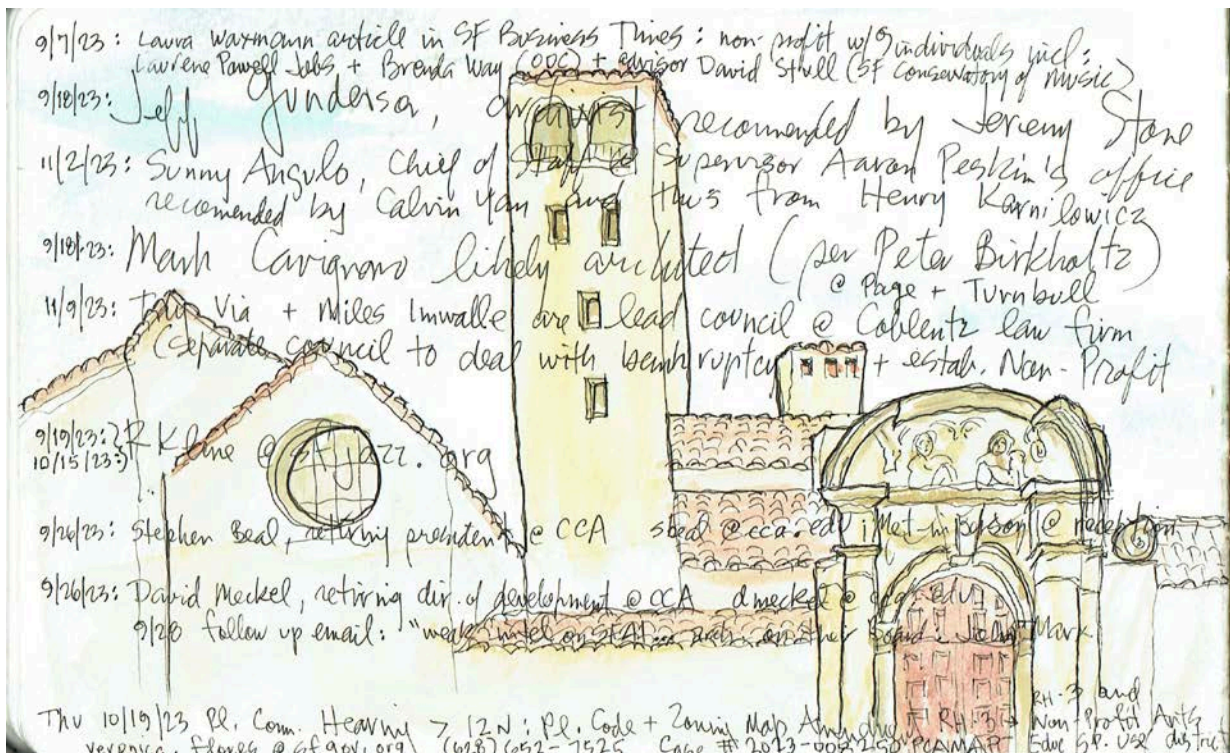 9/7/23: Laura Waxmann article in SF Business Times: non-profit w/ 5 individuals incl:
Laurene Powell Jobs + Brenda Way (ODC) + advisor David Stull (SF Conservatory of Music)
9/18/23: Jeff Gunderson, archivist recommended by Jeremy Stone
11/2/23: Sunny Angulo, Chief of Staff @ Supervisor Aaron Peskin's office
recomended by Calvin Yan and thus from Henry Karnilowicz
9/18/23: Mark Cavignero likely architect (per Peter Birkholtz)
@ Page + Turnbull
11/9/23: Tay Via + Miles Imwalle are lead council @ Coblentz law firm
(separate council to deal with bankruptcy + estab. Non-Profit
9/19/23: }
10/15/23: } RKline @ sfjazz.org
9/26/23: Stephen Beal, retiring president @ CCA sbeal @ cca.edu ; Met in person @ reception
9/26/23: David Meckel, retiring dir. of development @ CCA dmeckel @ cca.edu
9/28 follow up email: "weak intel on SFAI... on their board: John Marx
Thu 10/19/23 Pl. Com. Hearing > 12N: Pl. Code + Zoning Map RH-3 → RH-3 and Non-Profit Arts
veronica.flores @ sfgov.org (628) 652-7525 Case # Educ SP. Use District